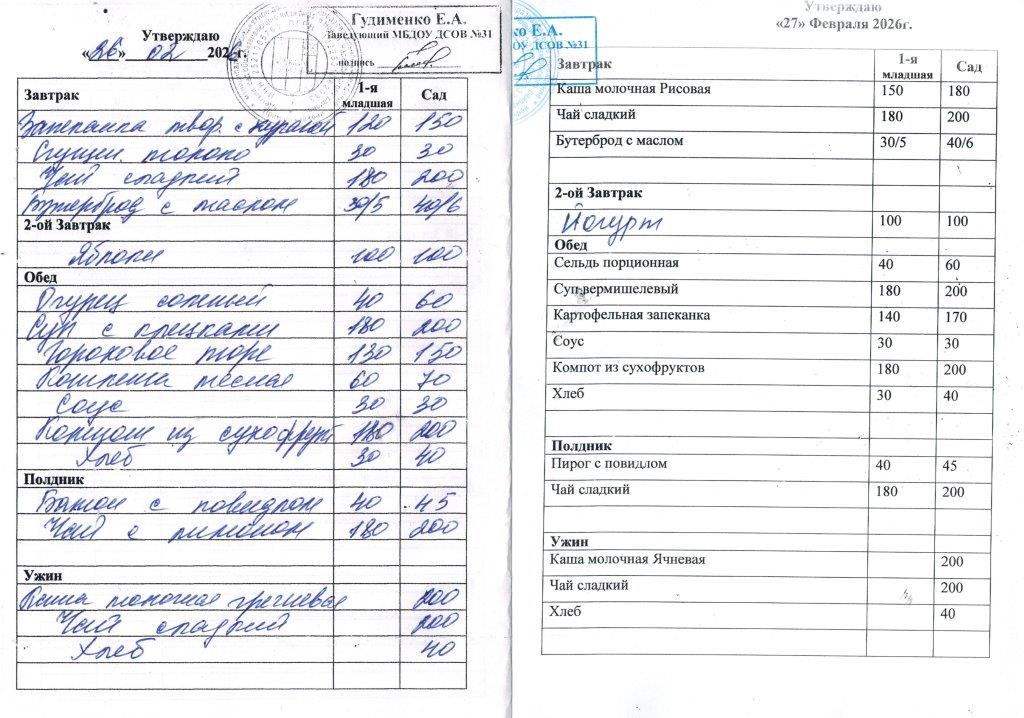 Гудименко Е.А.
Заведующий МБДОУ ДСОВ №31
подпись
Утверждаю
«26» 02 2026г.
Завтрак 1-я младшая Сад
Запеканка твор. с курагой 120 150
Сгущен. молоко 30 30
Чай сладкий 180 200
Бутерброд с маслом 30/5 40/6
2-ой Завтрак
Яблоки 100 100
Обед
Огурец соленый 40 60
Суп с клецками 180 200
Гороховое пюре 130 150
Котлета мясная 60 70
Соус 30 30
Компот из сухофрукт 180 200
Хлеб 30 40
Полдник
Батон с повидлом 40 45
Чай с лимоном 180 200
Ужин
Каша молочная гречневая 200
Чай сладкий 200
Хлеб 40
ко Е.А.
ОУ ДСОВ №31
Утверждаю
«27» Февраля 2026г.
Завтрак 1-я младшая Сад
Каша молочная Рисовая 150 180
Чай сладкий 180 200
Бутерброд с маслом 30/5 40/6
2-ой Завтрак
Йогурт 100 100
Обед
Сельдь порционная 40 60
Суп вермишелевый 180 200
Картофельная запеканка 140 170
Соус 30 30
Компот из сухофруктов 180 200
Хлеб 30 40
Полдник
Пирог с повидлом 40 45
Чай сладкий 180 200
Ужин
Каша молочная Ячневая 200
Чай сладкий 200
Хлеб 40